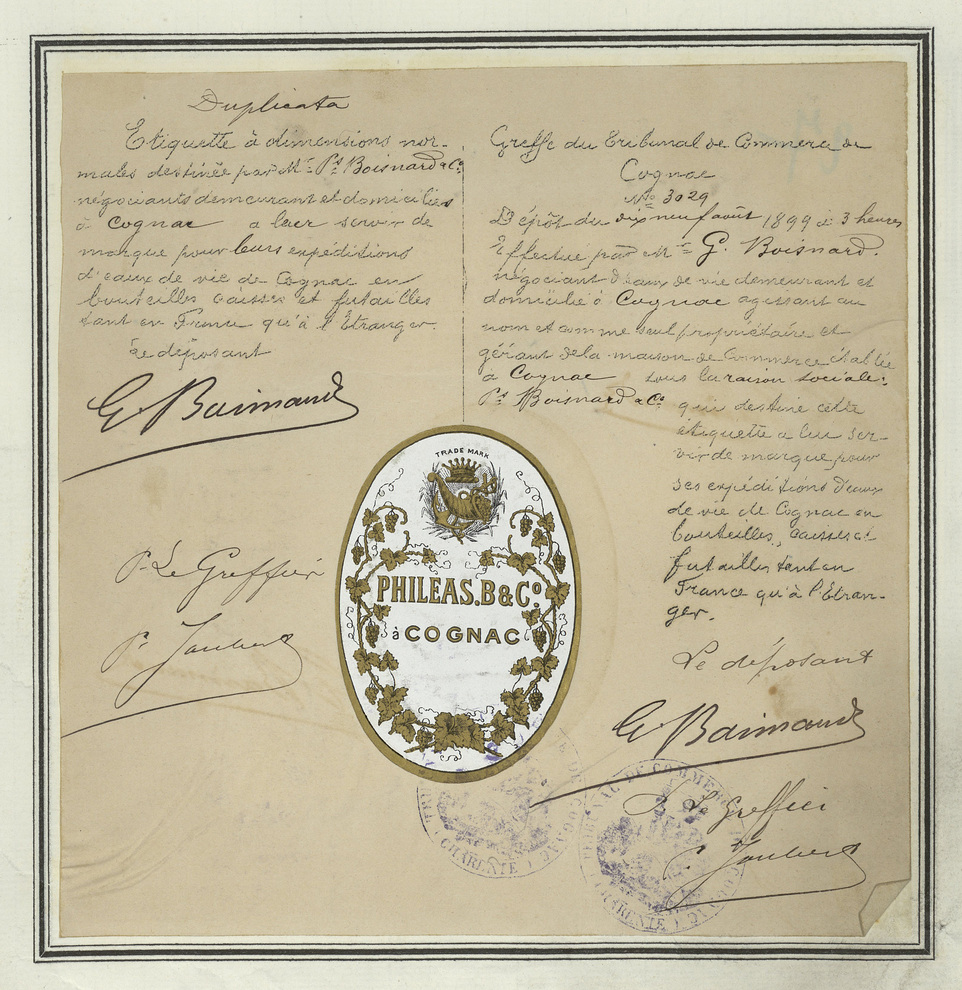 Duplicata
Etiquette à dimensions nor-
males destinée par Mr Ps Boisnard & Co
négociants demeurant et domiciliés
à Cognac a leur servir de
marque pour leurs expéditions
d'eaux de vie de Cognac en
bouteilles caisses et futailles
tant en France qu'à l'Etranger.
Le déposant
G. Boisnard
Pr Le Greffier
Greffe du Tribunal de Commerce de
Cognac
No 3029
Dépôt du dix neuf août 1899 à 3 heures
Effectué par Mr G. Boisnard.
négociant d'eaux de vie demeurant et
domicilié à Cognac agissant au
nom et comme seul propriétaire et
gérant de la maison de Commerce établie
a Cognac sous la raison sociale:
Ps Boisnard & Co qui destine cette
étiquette a lui ser-
vir de marque pour
ses expéditions d'eaux
de vie de Cognac en
bouteilles, caisses et
futailles tant en
France qu'à l'Etran-
ger.
Le déposant
G. Boisnard
Pr Le Greffier
TRADE MARK
PHILEAS.B & Co.
à COGNAC
TRIBUNAL DE COMMERCE
DE COGNAC
(CHARENTE)